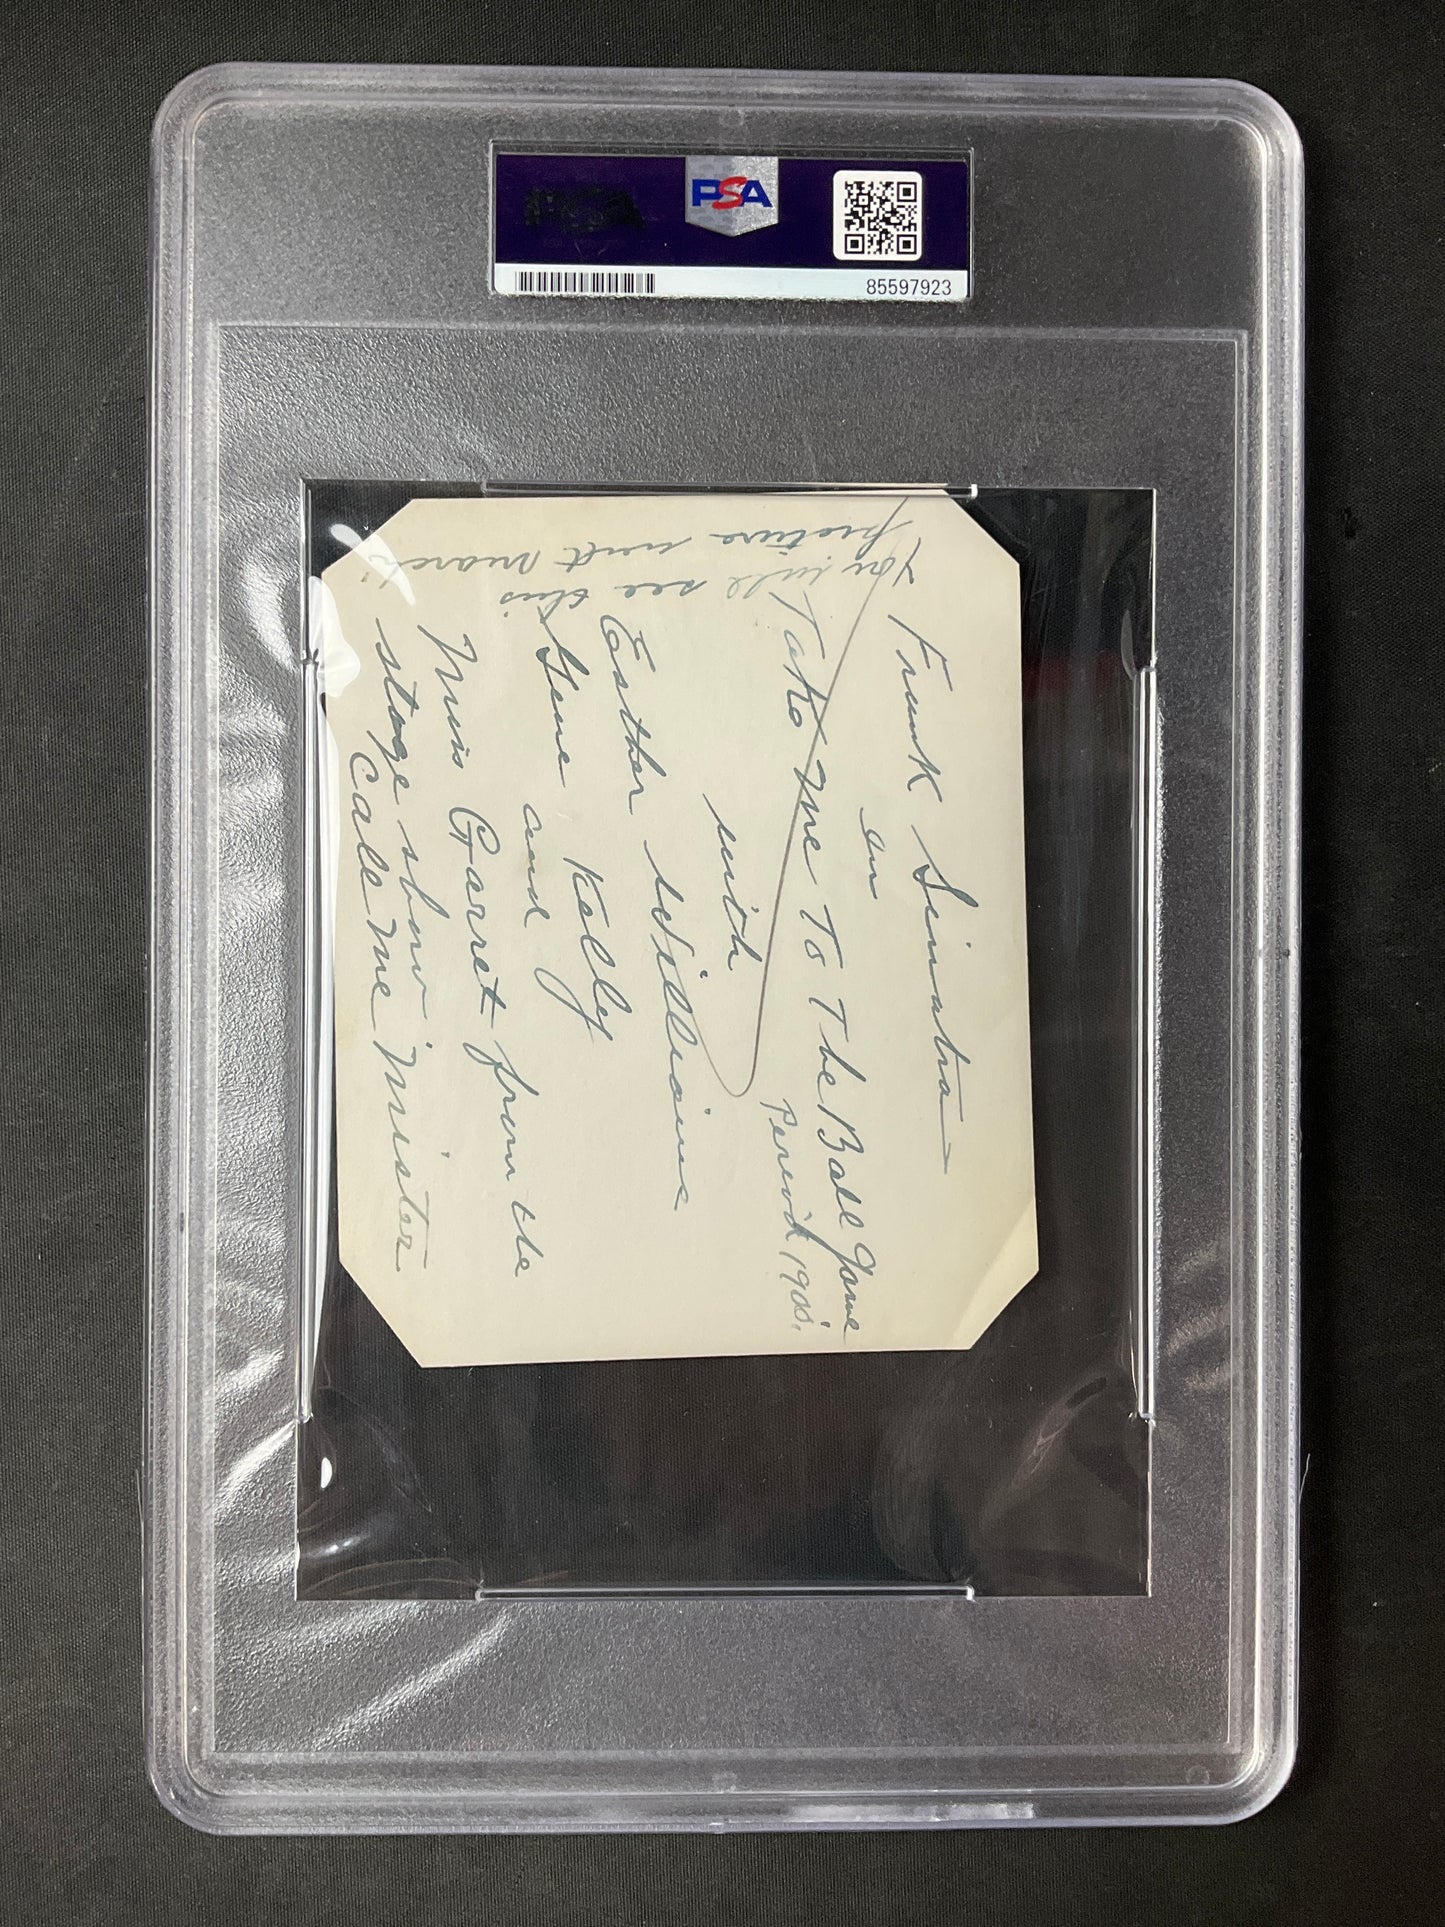 PSA
85597923
Frank Sinatra
in
Take Me To The Ball Game
Period 1900.
with
Esther Williams
Gene Kelly
and
Miss Garret from the
stage show
Call Me Mister
You will see this
picture next March